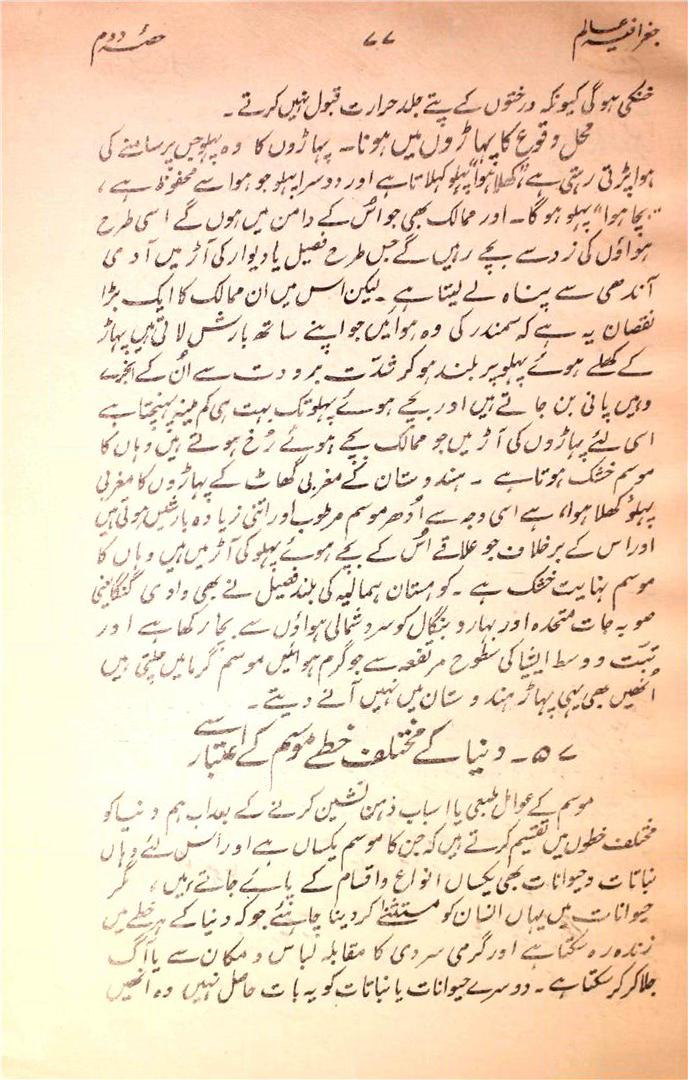 جغرافیہ عالم ۷۷ حصہ دوم
خنکی ہوگی کیونکہ درختوں کے پتے جلد حرارت قبول نہیں کرتے۔
محل وقوع کا پہاڑوں میں ہونا۔ پہاڑوں کا وہ پہلو جس پر سامنے کی
ہوا پڑتی رہتی ہے "کھلا ہوا" پہلو کہلاتا ہے اور دوسرا پہلو جو ہوا سے محفوظ ہے،
"بچا ہوا" پہلو ہوگا۔ اور ممالک بھی جو اُس کے دامن میں ہوں گے اسی طرح
ہواؤں کی زد سے بچے رہیں گے جس طرح فصیل یا دیوار کی آڑ میں آدمی
آندھی سے پناہ لے لیتا ہے۔ لیکن اس میں ان ممالک کا ایک بڑا
نقصان یہ ہے کہ سمندر کی وہ ہوائیں جو اپنے ساتھ بارش لاتی ہیں پہاڑ
کے کھلے ہوئے پہلو پر بلند ہوکر شدّت برودت سے اُن کے ابخرے
وہیں پانی بن جاتے ہیں اور بچے ہوئے پہلو تک بہت ہی کم مینہ پہنچتا ہے
اسی لئے پہاڑوں کی آڑ میں جو ممالک بچے ہوئے رُخ ہوتے ہیں وہاں کا
موسم خشک ہوتا ہے۔ ہندوستان کے مغربی گھاٹ کے پہاڑوں کا مغربی
پہلو "کھلا ہوا" ہے اسی وجہ سے اُدھر موسم مرطوب اور اتنی زیادہ بارشیں ہوتی ہیں
اور اس کے برخلاف جو علاقے اُس کے بچے ہوئے پہلو کی آڑ میں ہیں وہاں کا
موسم نہایت خشک ہے۔ کوہستان ہمالیہ کی بلند فصیل نے بھی وادی گنگا یعنی
صوبہ جات متحدہ اور بہار و بنگال کو سرد شمالی ہواؤں سے بچا رکھا ہے اور
تبّت و وسط ایشیا کی سطوح مرتفعہ سے جو گرم ہوائیں موسم گرما میں چلتی ہیں
اُنھیں بھی یہی پہاڑ ہندوستان میں نہیں آنے دیتے۔
۵۷۔ دنیا کے مختلف خطے موسم کے اعتبار سے
موسم کے عوامل طبعی یا اسباب ذہن نشین کرنے کے بعد اب ہم دنیا کو
مختلف خطوں میں تقسیم کرتے ہیں کہ جن کا موسم یکساں ہے اور اس لئے وہاں
نباتات و حیوانات بھی یکساں انواع و اقسام کے پائے جاتے ہیں، مگر
حیوانات میں یہاں انسان کو مستثنیٰ کردینا چاہئے جو کہ دنیا کے ہر خطے میں
زندہ رہ سکتا ہے اور گرمی سردی کا مقابلہ لباس و مکان سے یا آگ
جلا کر کرسکتا ہے۔ دوسرے حیوانات یا نباتات کو یہ بات حاصل نہیں وہ انھیں